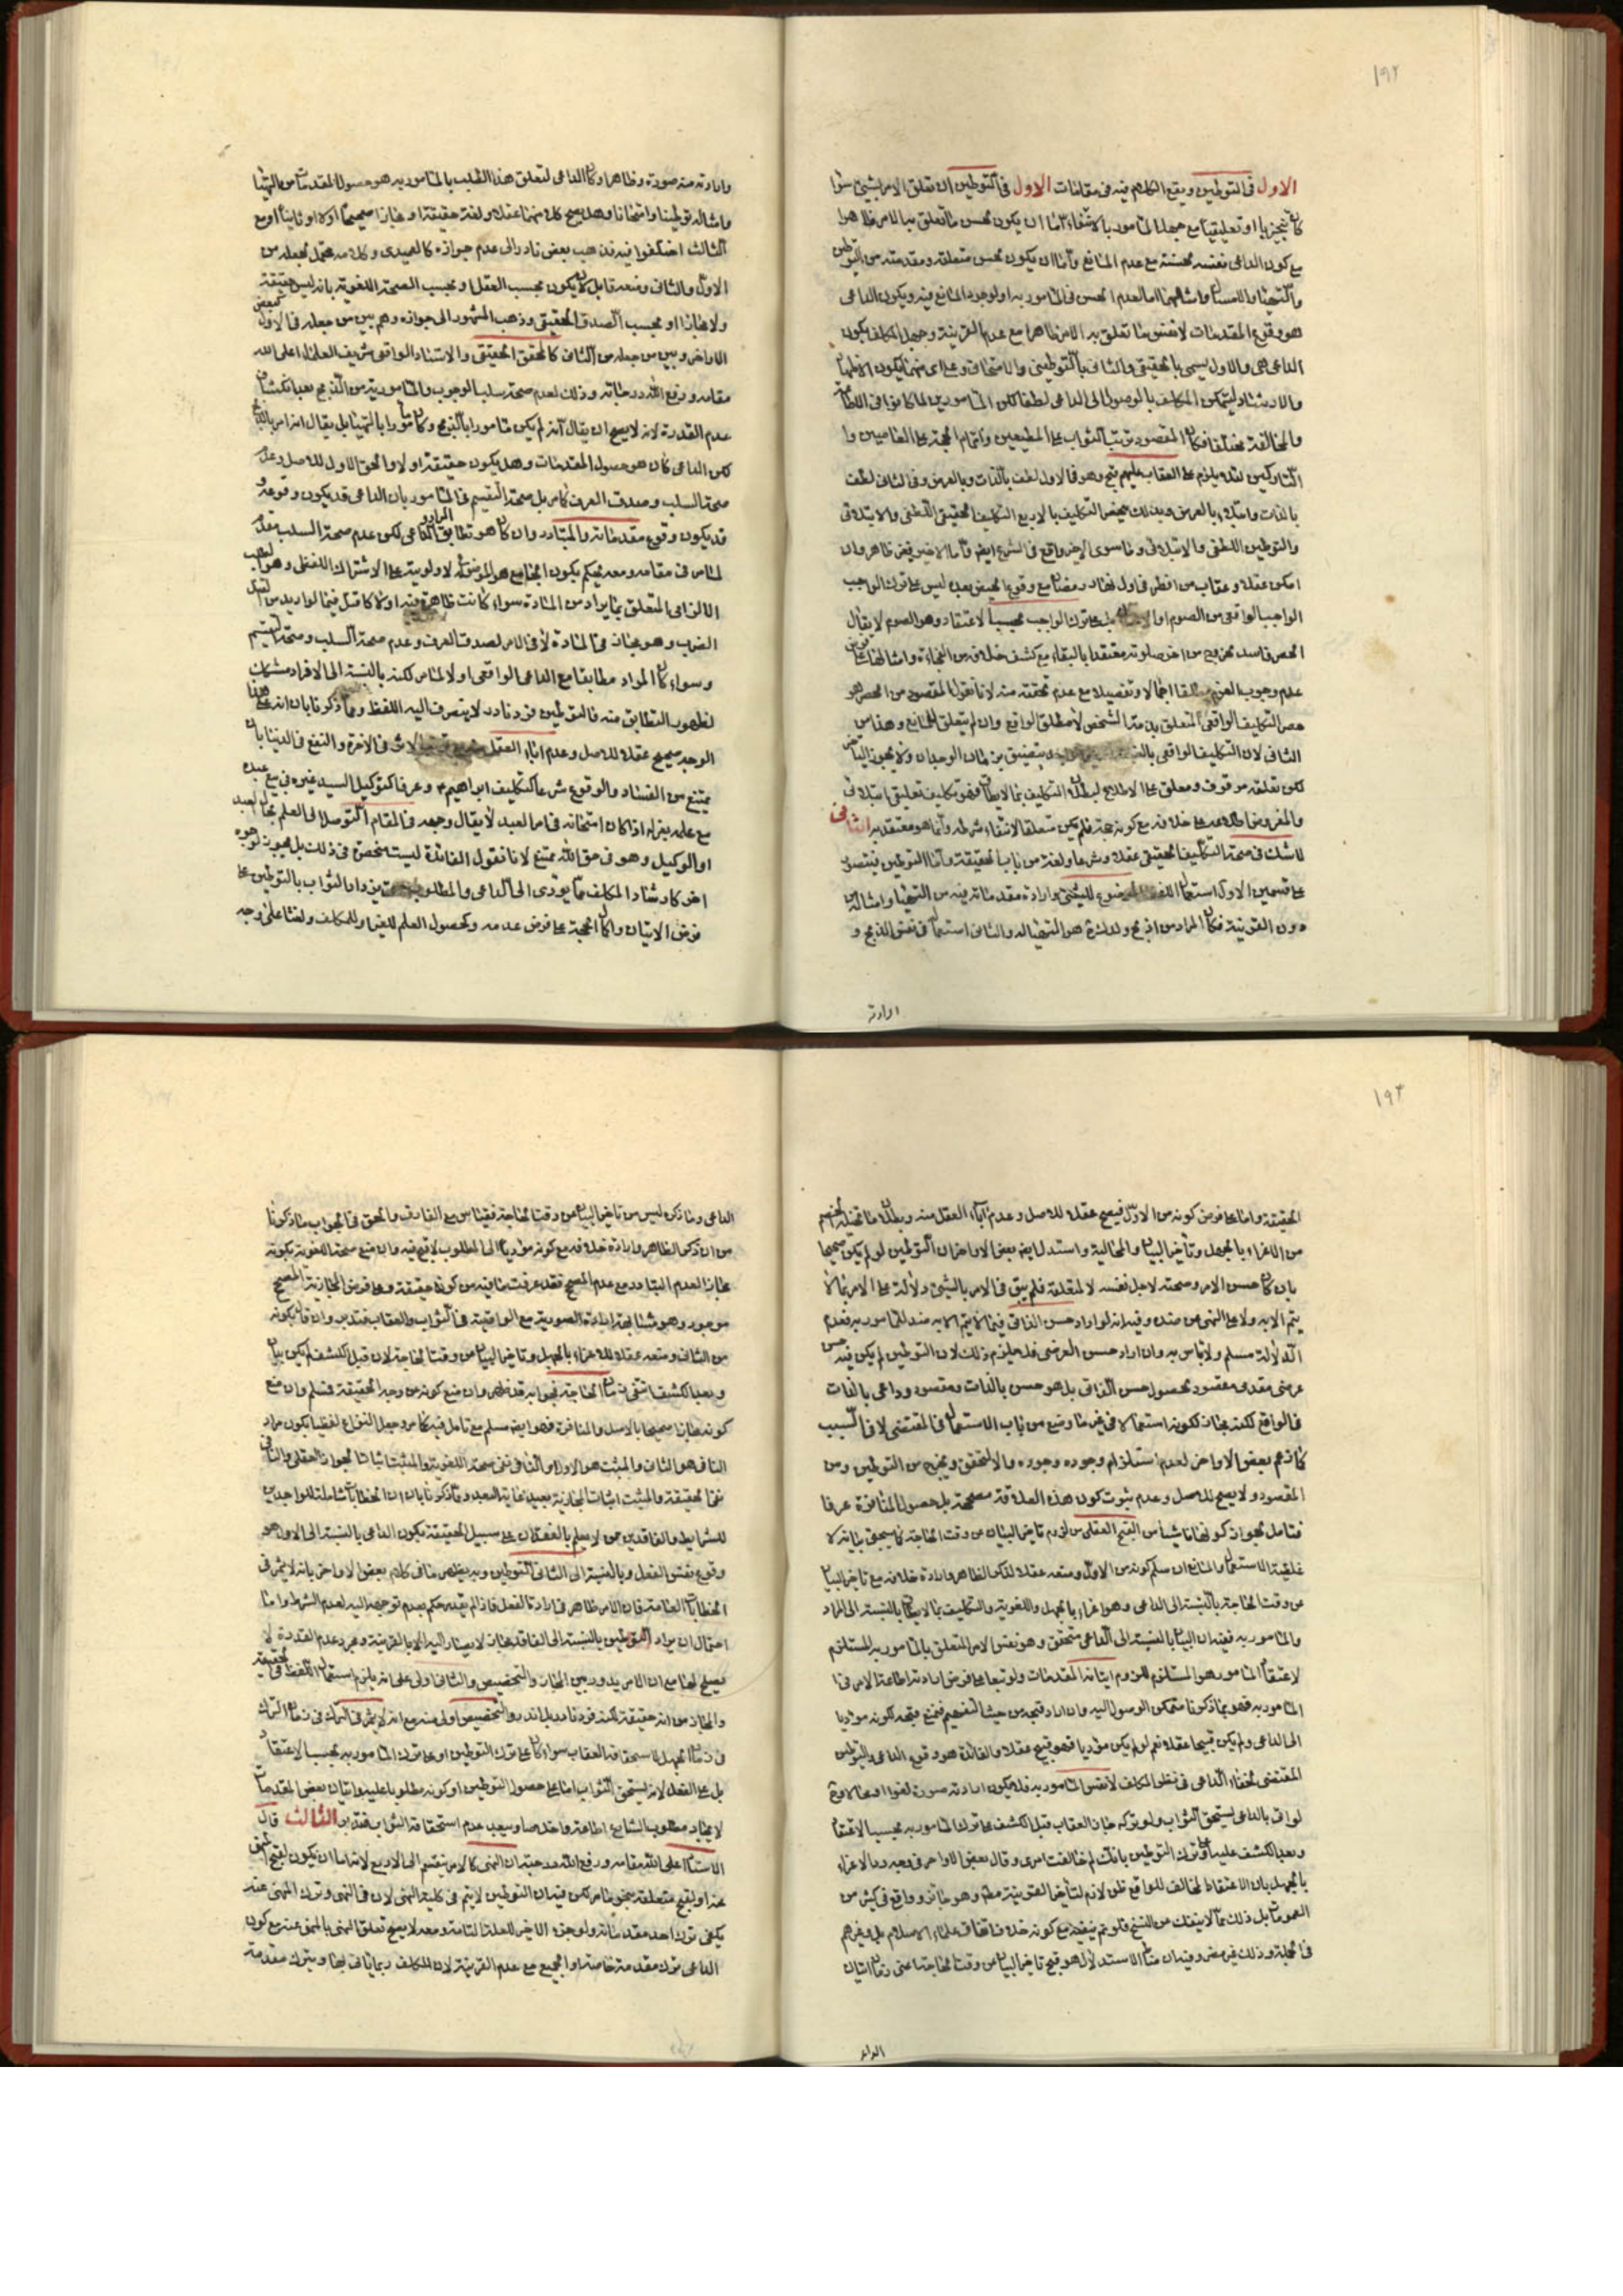 ١٩٢
الاول فى التوطين ويقع الكلام فيه فى مقامات الاول فى التوطين ان تعلق الامر بشئ سواء
كان تنجيزيا او تعليقيا مع جهل المأمور بالانتفاء اما ان يكون لحسن ما تعلق به الامر ظاهرا
مع كون الداعى نفسه لحسنه مع عدم المانع واما ان يكون لحسن متعلقه ومقدمته من التوطين
هو وقوع المقدمات لا نفس ما تعلق به الامر ظاهرا مع عدم القرينة وجهل المكلف بكون
الداعى هى والاول يسمى بالحقيقى والثانى بالتوطينى والامتحانى
والارشاد ليتمكن المكلف بالوصول الى الداعى لطفا لكن المأمورين لما كانوا فى اللطاعة
والمخالفة مختلفا فكان المقصود ترتب الثواب على المطيعين واتمام الحجة على العاصين وا
لئلا يلزم على العقاب عليهم قبح وهو فى الاول لطف بالذات وبالعرض وفى الثانى لطف
بالذات وابتلاء بالعرض وبذلك ينحصر التكليف بالاربع التكليف الحقيقى اللطفى والابتلائى
والتوطين اللطفى والابتلائى وما سوى الاخير واقع فى الشرع ايضا واما الاخير فغير ظاهر وان
امكن عقلا وعقاب من افطر فى اول نهار رمضان مع وقوع الحيض بعد ليس على ترك الواجب
الواجب الواقعى من الصوم على ترك الواجب بحسب الاعتقاد وهو الصوم لا يقال
علم وجوب العزم مطلقا اجمالا وتفصيلا مع عدم تحققه منه لانا نقول المقصود من الحصر هو
حصر التكليف الواقعى المتعلق بذمة الشخص لا مطلق الواقع وان لم يتعلق لمانع وهذا من
لكن تعلقه موقوف ومعلق على الاطلاع لبطلان التكليف بما لا يطاق فهو تكليف تعليقى
الثانى
لا شك فى صحة التكليف الحقيقى عقلا وشرعا ولغة من باب الحقيقة واما التوطين فيتصور
على قسمين الاول استعمال اللفظ الموضوع للشئ وارادة مقدماته منه من التهيأ وامثاله من
دون القرينة فكان المراد من اذبح ولدك هو التهيأ له والثانى استعماله فى نفس الذبح و
ارادته
وارادته منه صورة وظاهرا وكان الداعى لتعلق هذا الطلب بالمأمور به هو حصول المقدمات من التهيأ
وامثاله توطينا وامتحانا وهل يصح كل منهما عقلا ولغة حقيقة او مجازا صحيحا اولا او ثانيا او مع
الثالث اختلفوا فيه فذهب بعض نادر الى عدم جوازه كالعميدى وكلامه محتمل لجعله من
الاول والثانى ومنعه قابل لان يكون بحسب العقل او بحسب الصحة اللغوية بانه ليس حقيقة
ولا مجازا او بحسب الصدق الحقيقى وذهب المشهور الى جوازه وهم بين من جعله فى الاول كبعض
الاواخر وبين من جعله من الثانى كالمحقق الحقيقى والاستاد الواقعى شريف العلماء اعلى الله
مقامه ورفع الله درجاته وذلك لعدم صحة سلب الوجوب والمأمورية من الذبح بعد انكشاف
عدم القدرة لانه لا يصح ان يقال انه لم يكن مأمورا بالذبح وكان مأمورا بالتهيأ بل يقال انه امر بالذبح
لكن الداعى كان هو حصول المقدمات وهل يكون حقيقة او لا والحق الاول للاصل وعدم
صحة السلب وصدق العرف كما مر بل صحة التقسيم فى المأمور بان الداعى قد يكون وقوعه و
قد يكون وقوع مقدماته والمتبادر وان كان هو تطابق المراد والداعى لكن عدم صحة السلب مقدم
لما مر فى مقامه ومعه نحكم بكون الجامع هو الموضوع له لاولوية على الاشتراك اللفظى وهو الطلب
الضرب وهو مجاز فى المادة لا فى الامر لصدق العرف وعدم صحة السلب وصحة التقسيم
وسواء كان المراد مطابقا مع الداعى الواقعى او لا لما مر لكنه بالنسبة الى الافراد مشكك
لظهور التطابق منه فالتوطين فرد نادر لا ينصرف اليه اللفظ ومما ذكرنا بان انه على هذا
الوجه صحيح عقلا للاصل وعدم اباء العقل فى الاخرة والنفع فى الدنيا بان
يمتنع من الفساد والوقوع شرعا كتكليف ابراهيم ع وعرفا كتوكيل السيد غيره فى بيع عبده
مع علمه بعزله اذا كان امتحانه فى امر العبد لا يقال وجهه فى المقام التوصل الى العلم بحال العبد
او الوكيل وهو فى حق الله ممتنع لانا نقول الفائدة ليست منحصرة فى ذلك بل يجوز لوجوه
اخر كارشاد المكلف بما يؤدى الى الداعى والمطلوب وازدياد الثواب بالتوطين على
فرض الاتيان واكمال الحجة على فرض عدمه وكحصول العلم للغير او للمكلف
١٩٣
الحقيقة واما على فرض كونه من الاول فيصح عقلا للاصل وعدم اباء العقل منه وبطلان ما تخيله الخصم
من الاغراء بالجهل وتأخير البيان والمحالية واستدل ايضا بعض الاواخر ان التوطين لو لم يكن صحيحا
بان كان حسن الامر وصحته لاجل نفسه لا لمتعلقه فلم يبق فى الامر بالشئ دلالة على الامر بما لا
يتم الا به ولا على النهى عن ضده وفيه انه لو اراد حسن الذاتى فيما لا يتم الا به ضد للمأمور به فعدم
الدلالة مسلم ولا بأس به وان اراد حسن العرضى فلا يلزم ذلك لان التوطين لم يكن فيه حسن
عرضى مقدمى مقصود لحصول حسن الذاتى بل هو حسن بالذات ومقصود وداعى بالذات
فى الواقع لكنه مجاز لكونه استعمالا فى غير ما وضع من باب الاستعمال فى المقتضى لا فى السبب
كما زعم بعض الاواخر لعدم استلزام وجوده وجوده والا لتحقق ويخرج من التوطين ومن
المقصود ولا يصح للاصل وعدم ثبوت كون هذه العلاقة مصححة بل حصول المنافرة عرفا
فتأمل لجواز كونها ناشيا من القبح العقلى من لزوم تاخير البيان عن وقت الحاجة كما سيجئ بيانه لا
غلبة الاستعمال والمانع ان سلم كونه من الاول ومنعه عقلا لذكر الظاهر وارادة خلافه مع تاخير البيان
عن وقت الحاجة بالنسبة الى الداعى وهو اغراء بالجهل واللغوية والتكليف بما لا يطاق بالنسبة الى المراد
والمأمور به ففيه ان البيان بالنسبة الى الداعى متحقق وهو نفس الامر المتعلق بالمأمور به المستلزم
لاعتقاد المأمور هو المستلزم للزوم اتيانه المقدمات ولو تبعا على فرض ارادته اطاعة الامر فى
المأمور به فهو بما ذكرنا متمكن الوصول اليه وان اراد قبحه من حيث التفهيم فنمنع قبحه لكونه مؤديا
الى الداعى ولم يكن قبيحا عقلا نعم لو لم يكن مؤديا فهو قبيح عقلا والفائدة هو وقوع الداعى والتوطين
المقتضى لخفاء الداعى فى نظر المكلف لا نفس المأمور به فلا يكون ارادته صورة لغوا
لو اتى بالداعى يستحق الثواب ولو تركه جاز العقاب قبل الكشف على ترك المأمور به بحسب الاعتقاد
وبعد الكشف عليه على ترك التوطين بانك لم خالفت امرى وقال بعض الاواخر فى وجه رد الاغراء
بالجهل بان الاعتقاد المخالف للواقع ظن لازم لتأخير القرينة مطلقا وهو جائز وواقع فى كثير من
العمومات بل ذلك مما لا ينفك عن النسخ فلو تم نفيه مع كونه خلاف اتفاق علماء الاسلام بل وغيرهم
فى الجملة وذلك غير مضر وفيه ان مناط الاستدلال هو قبح تاخير البيان عن وقت الحاجة اعنى زمان اتيان
الداعى
الداعى وما ذكره ليس من تاخير البيان عن وقت الحاجة فقياس مع الفارق والحق فى الجواب ما ذكرنا
من ان ذكر الظاهر وارادة خلافه مع كونه مؤديا الى المطلوب لا قبح فيه وان منع صحة اللغوية بكونه
مجازا لعدم التبادر مع عدم المصحح فقد عرفت ما فيه من كونها حقيقة وعلى فرض المجازية المصحح
موجود وهو مشابهة ارادة الصورية مع الواقعية فى الثواب والعقاب فتدبر وان قال بكونه
من الثانى ومنعه عقلا للاغراء بالجهل وتاخير البيان عن وقت الحاجة لان قبل الكشف لم يكن بيان
وبعد الكشف انتفى زمان الحاجة فجوابه قد ظهر وان منع كونه من وجه الحقيقة فمسلم وان منع
كونه مجازا صحيحا بالاصل والمنافرة فهو ايضا مسلم مع تامل فيه كما مر وجعل النزاع لفظيا بكون مراد
النافى هو الثانى والمثبت هو الاول او النافى نفى صحة اللغوية والمثبت اثبات الجواز العقلى والنافى
نفى الحقيقة والمثبت اثبات المجازية بعيد غاية البعد ومما ذكرنا بان ان الخطابات الشاملة للواجدين
للشرايط والفاقدين ممن لا يعلم بالفقدان على سبيل الحقيقة بكون الداعى بالنسبة الى الاول هو
وقوع نفس الفعل وبالنسبة الى الثانى التوطين وبه يظهر ما فى كلام بعض الاواخر بانه لا يثمر فى
الخطابات العامة فان الامر ظاهر فى ارادة الفعل فاذا لم يقدر حكم بعدم توجهه اليه لعدم الشرط واما
احتمال ان يراد التوطين بالنسبة الى الفاقد مجاز لا يصار اليه الا بالقرينة ومجرد عدم القدرة لا
يصلح لها مع ان الامر يدور بين المجاز والتخصيص والثانى اولى على انه يلزم استعمال اللفظ فى حقيقته
والمجاز من انه حقيقة لكنه فرد نادر بل اندر والتخصيص اولى منه مع انه لا يثمر فى الترك فى زمان الترك
فى زمان الجهل لاستحقاقه العقاب سواء كان على ترك التوطين او على ترك المأمور به بحسب الاعتقاد
بل على الفعل لانه يستحق الثواب اما على حصول التوطين او كونه مطلوبا عليه واتيان بعض المقدمات
لايجاد مطلوب الشارع اطاعة واخلاصا ويبعد عدم استحقاقه الثواب فتدبر الثالث قال
الاستاد اعلى الله مقامه ورفع الله درجته ان النهى كالامر ينقسم الى الاربع لانه اما ان يكون لقبح المنهى
عنه او لقبح متعلقه بنحو ما مر لكن فيه ان التوطين لا يتم فى كلية النهى لان فى النهى وترك المنهى عنه
يكفى ترك احد مقدماته ولو جزء الاخير للعلة التامة ومعه لا يصح تعلق النهى بالمنهى عنه مع كون
الداعى ترك مقدمة خاصة او الجميع مع عدم القرينة لان المكلف ربما ياتى بها ويترك مقدمة